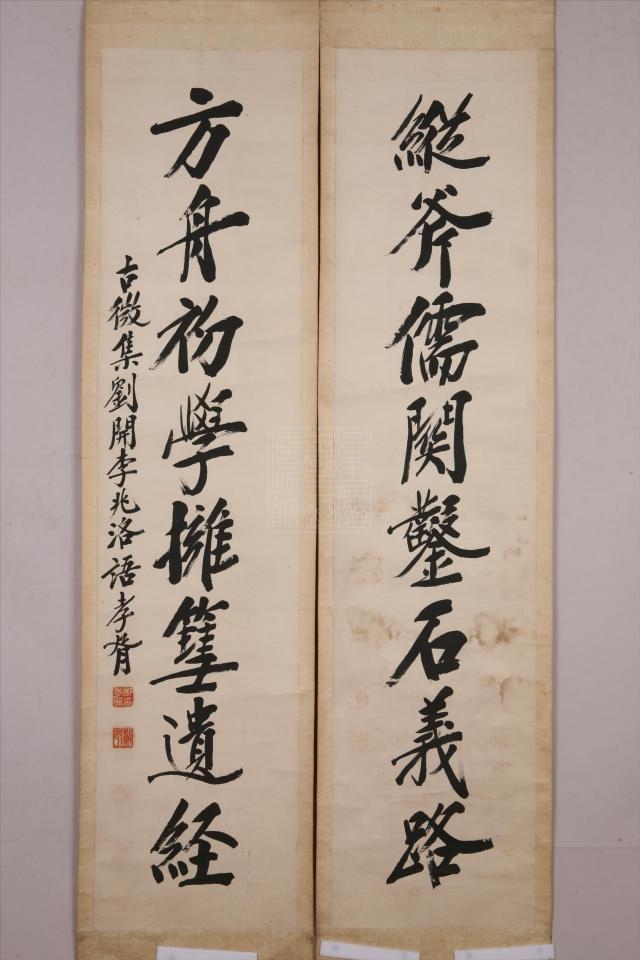 縱斧儒関鑿石義路
方舟初學擁篲遺經
古微集劉開李兆洛語孝胥